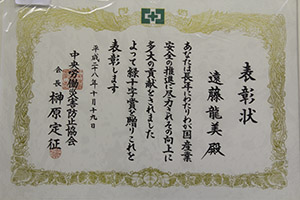 表彰状
遠藤龍美殿
あなたは長年にわたりわが国産業
安全の推進に尽力されその向上に
多大の貢献をされました
よって緑十字賞を贈りこれを
表彰します
平成二八年十月十九日
中央労働災害防止協会
会長 榊原定征